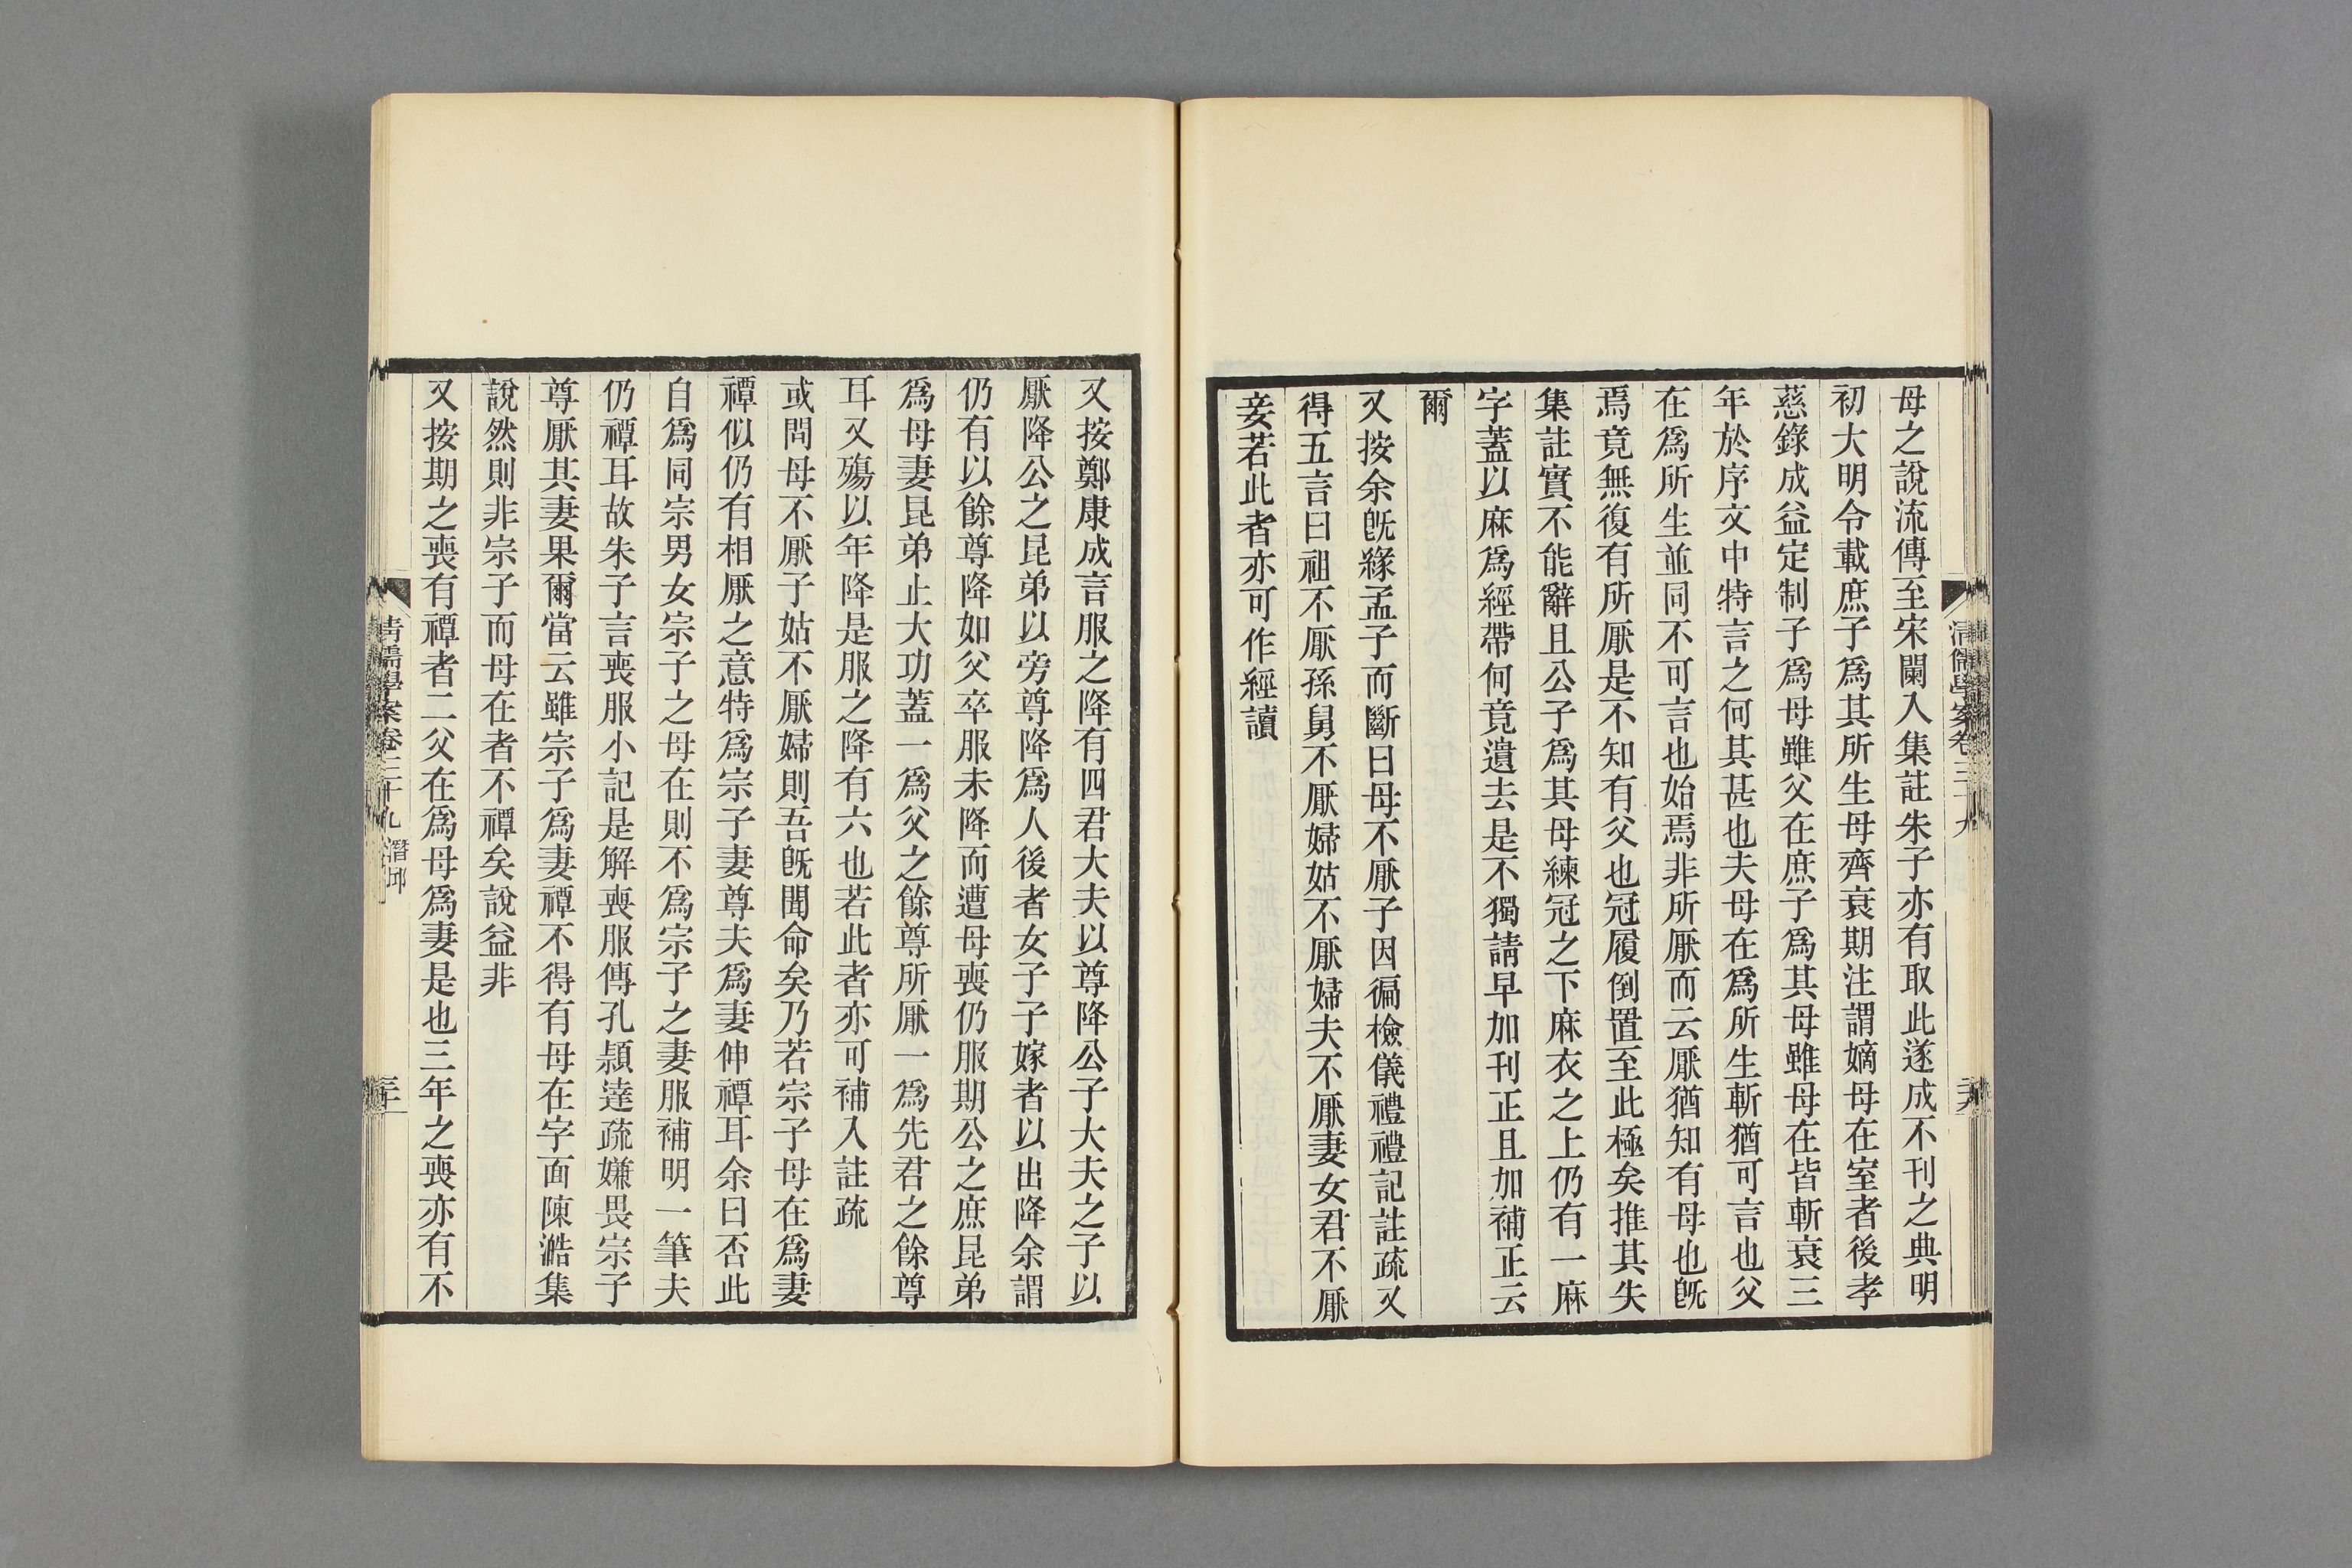 母之說流傳至宋闌入集註朱子亦有取此遂成不刊之典明
初大明令載庶子爲其所生母齊衰期注謂嫡母在室者後孝
慈錄成益定制子爲母雖父在庶子爲其母雖母在皆斬衰三
年於序文中特言之何其甚也夫母在爲所生斬猶可言也父
在爲所生並同不可言也始焉非所厭而云厭猶知有母也旣
焉竟無復有所厭是不知有父也冠履倒置至此極矣推其失
集註實不能辭且公子爲其母練冠之下麻衣之上仍有一麻
字蓋以麻爲絰帶何竟遺去是不獨請早加刊正且加補正云
爾
又按余旣緣孟子而斷曰母不厭子因徧檢儀禮禮記註疏又
得五言曰祖不厭孫舅不厭婦姑不厭婦夫不厭妻女君不厭
妾若此者亦可作經讀
又按鄭康成言服之降有四君大夫以尊降公子大夫之子以
厭降公之昆弟以旁尊降爲人後者女子子嫁者以出降余謂
仍有以餘尊降如父卒服未降而遭母喪仍服期公之庶昆弟
爲母妻昆弟止大功蓋一爲父之餘尊所厭一爲先君之餘尊
耳又殤以年降是服之降有六也若此者亦可補入註疏
或問母不厭子姑不厭婦則吾旣聞命矣乃若宗子母在爲妻
禫似仍有相厭之意特爲宗子妻尊夫爲妻伸禫耳余曰否此
自爲同宗男女宗子之母在則不爲宗子之妻服補明一筆夫
仍禫耳故朱子言喪服小記是解喪服傳孔頴達疏嫌畏宗子
尊厭其妻果爾當云雖宗子爲妻禫不得有母在字面陳澔集
說然則非宗子而母在者不禫矣說益非
又按期之喪有禫者二父在爲母爲妻是也三年之喪亦有不
清儒學案卷三十九 潛邱